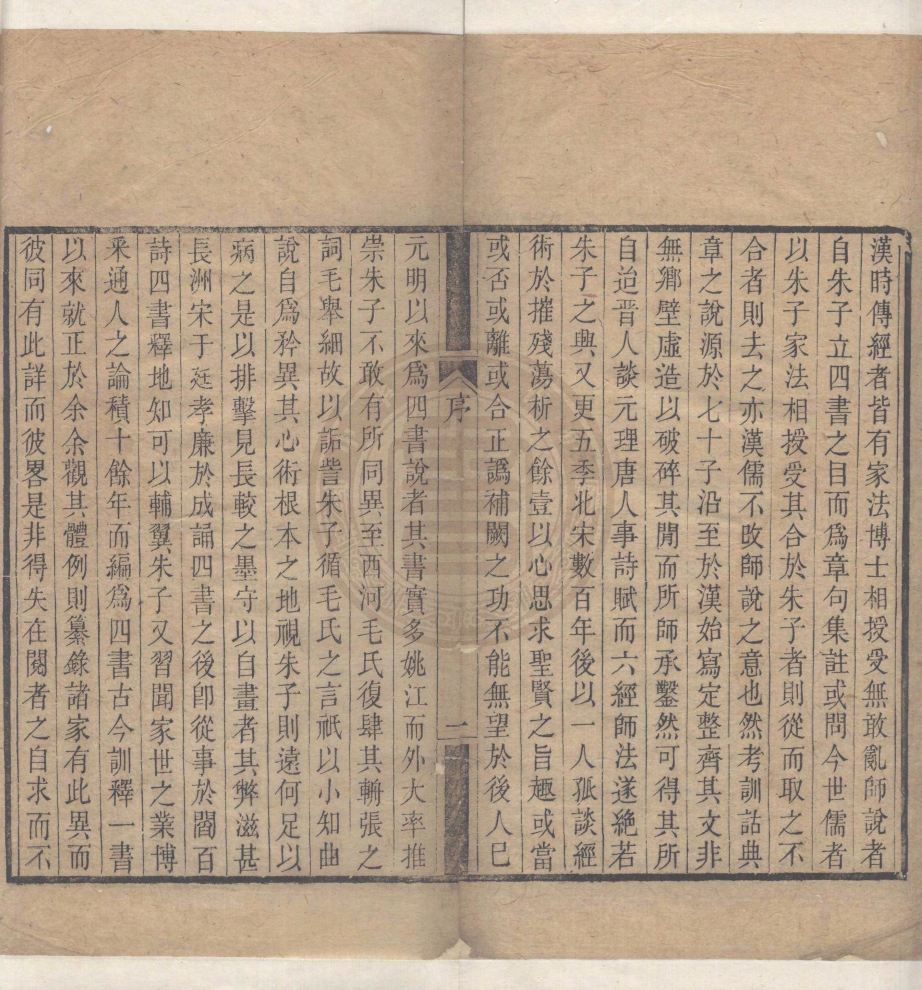 漢時傳經者皆有家法博士相授受無敢亂師說者
自朱子立四書之目而爲章句集註或問今世儒者
以朱子家法相授受其合於朱子者則從而取之不
合者則去之亦漢儒不改師說之意也然考訓詁典
章之說源於七十子沿至於漢始寫定整齊其文非
無鄉壁虛造以破碎其閒而所師承鑿然可得其所
自迨晋人談元理唐人事詩賦而六經師法遂絶若
朱子之興又更五季北宋數百年後以一人孤談經
術於摧殘蕩析之餘壹以心思求聖賢之旨趣或當
或否或離或合正譌補闕之功不能無望於後人巳
序
二
元明以來爲四書說者其書實多姚江而外大率推
崇朱子不敢有所同異至西河毛氏復肆其輈張之
詞毛舉細故以詬訾朱子循毛氏之言祇以小知曲
說自爲矜異其心術根本之地視朱子則遠何足以
病之是以排擊見長較之墨守以自畫者其弊滋甚
長洲宋于廷孝廉於成誦四書之後卽從事於閻百
詩四書釋地知可以輔翼朱子又習聞家世之業博
釆通人之論積十餘年而編爲四書古今訓釋一書
以來就正於余余觀其體例則纂錄諸家有此異而
彼同有此詳而彼畧是非得失在閱者之自求而不